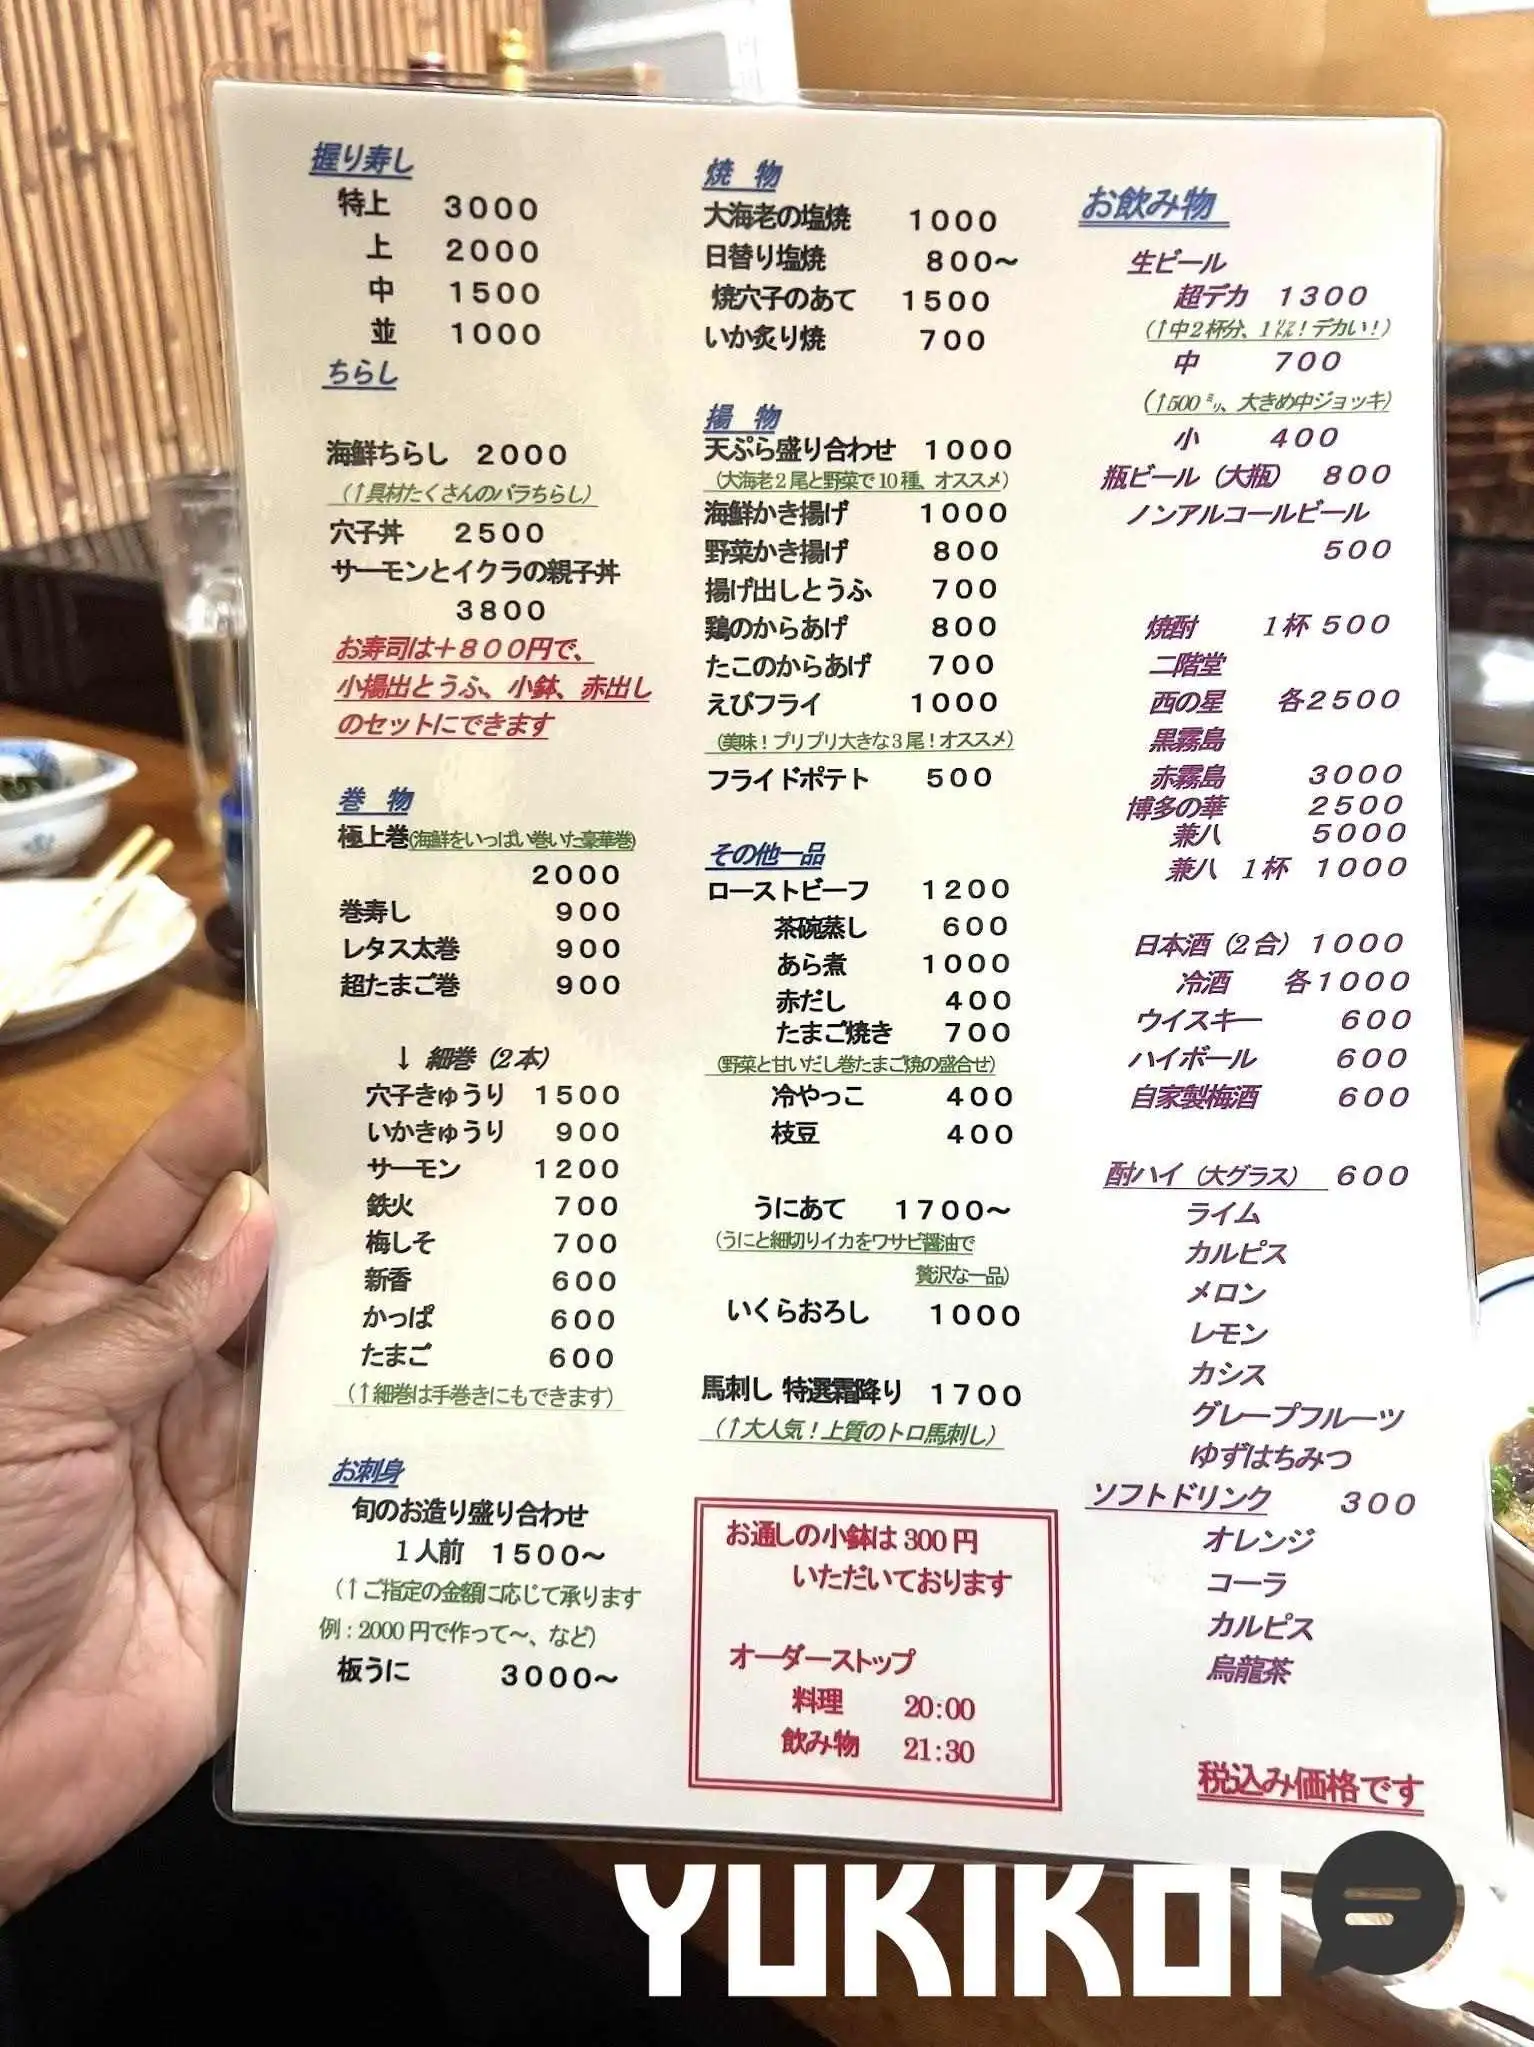 握り寿し
特上 3000
上 2000
中 1500
並 1000
ちらし
海鮮ちらし 2000
(↑具材たくさんのバラちらし)
穴子丼 2500
サーモンとイクラの親子丼
3800
お寿司は＋800円で、
小揚出とうふ、小鉢、赤出し
のセットにできます
巻 物
極上巻(海鮮をいっぱい巻いた豪華巻)
2000
巻寿し 900
レタス太巻 900
超たまご巻 900
↓ 細巻 (2本)
穴子きゅうり 1500
いかきゅうり 900
サーモン 1200
鉄火 700
梅しそ 700
新香 600
かっぱ 600
たまご 600
(↑細巻は手巻きにもできます)
お刺身
旬のお造り盛り合わせ
1人前 1500～
(↑ご指定の金額に応じて承ります
例：2000円で作って～、など)
板うに 3000～
焼 物
大海老の塩焼 1000
日替り塩焼 800～
焼穴子のあて 1500
いか炙り焼 700
揚 物
天ぷら盛り合わせ 1000
(大海老2尾と野菜で10種、オススメ)
海鮮かき揚げ 1000
野菜かき揚げ 800
揚げ出しとうふ 700
鶏のからあげ 800
たこのからあげ 700
えびフライ 1000
(美味！プリプリ大きな3尾！オススメ)
フライドポテト 500
その他一品
ローストビーフ 1200
茶碗蒸し 600
あら煮 1000
赤だし 400
たまご焼き 700
(野菜と甘いだし巻たまご焼の盛合せ)
冷やっこ 400
枝豆 400
うにあて 1700～
(うにと細切りイカをワサビ醤油で
贅沢な一品)
いくらおろし 1000
馬刺し 特選霜降り 1700
(↑大人気！上質のトロ馬刺し)
お通しの小鉢は300円
いただいております
オーダーストップ
料理 20:00
飲み物 21:30
お飲み物
生ビール
超デカ 1300
(↑中2杯分、1㍑！デカい！)
中 700
(↑500㍉、大きめ中ジョッキ)
小 400
瓶ビール (大瓶) 800
ノンアルコールビール
500
焼酎 1杯 500
二階堂
西の星 各2500
黒霧島
赤霧島 3000
博多の華 2500
兼八 5000
兼八 1杯 1000
日本酒 (2合) 1000
冷酒 各1000
ウイスキー 600
ハイボール 600
自家製梅酒 600
酎ハイ (大グラス) 600
ライム
カルピス
メロン
レモン
カシス
グレープフルーツ
ゆずはちみつ
ソフトドリンク 300
オレンジ
コーラ
カルピス
烏龍茶
税込み価格です
YUKIKOI